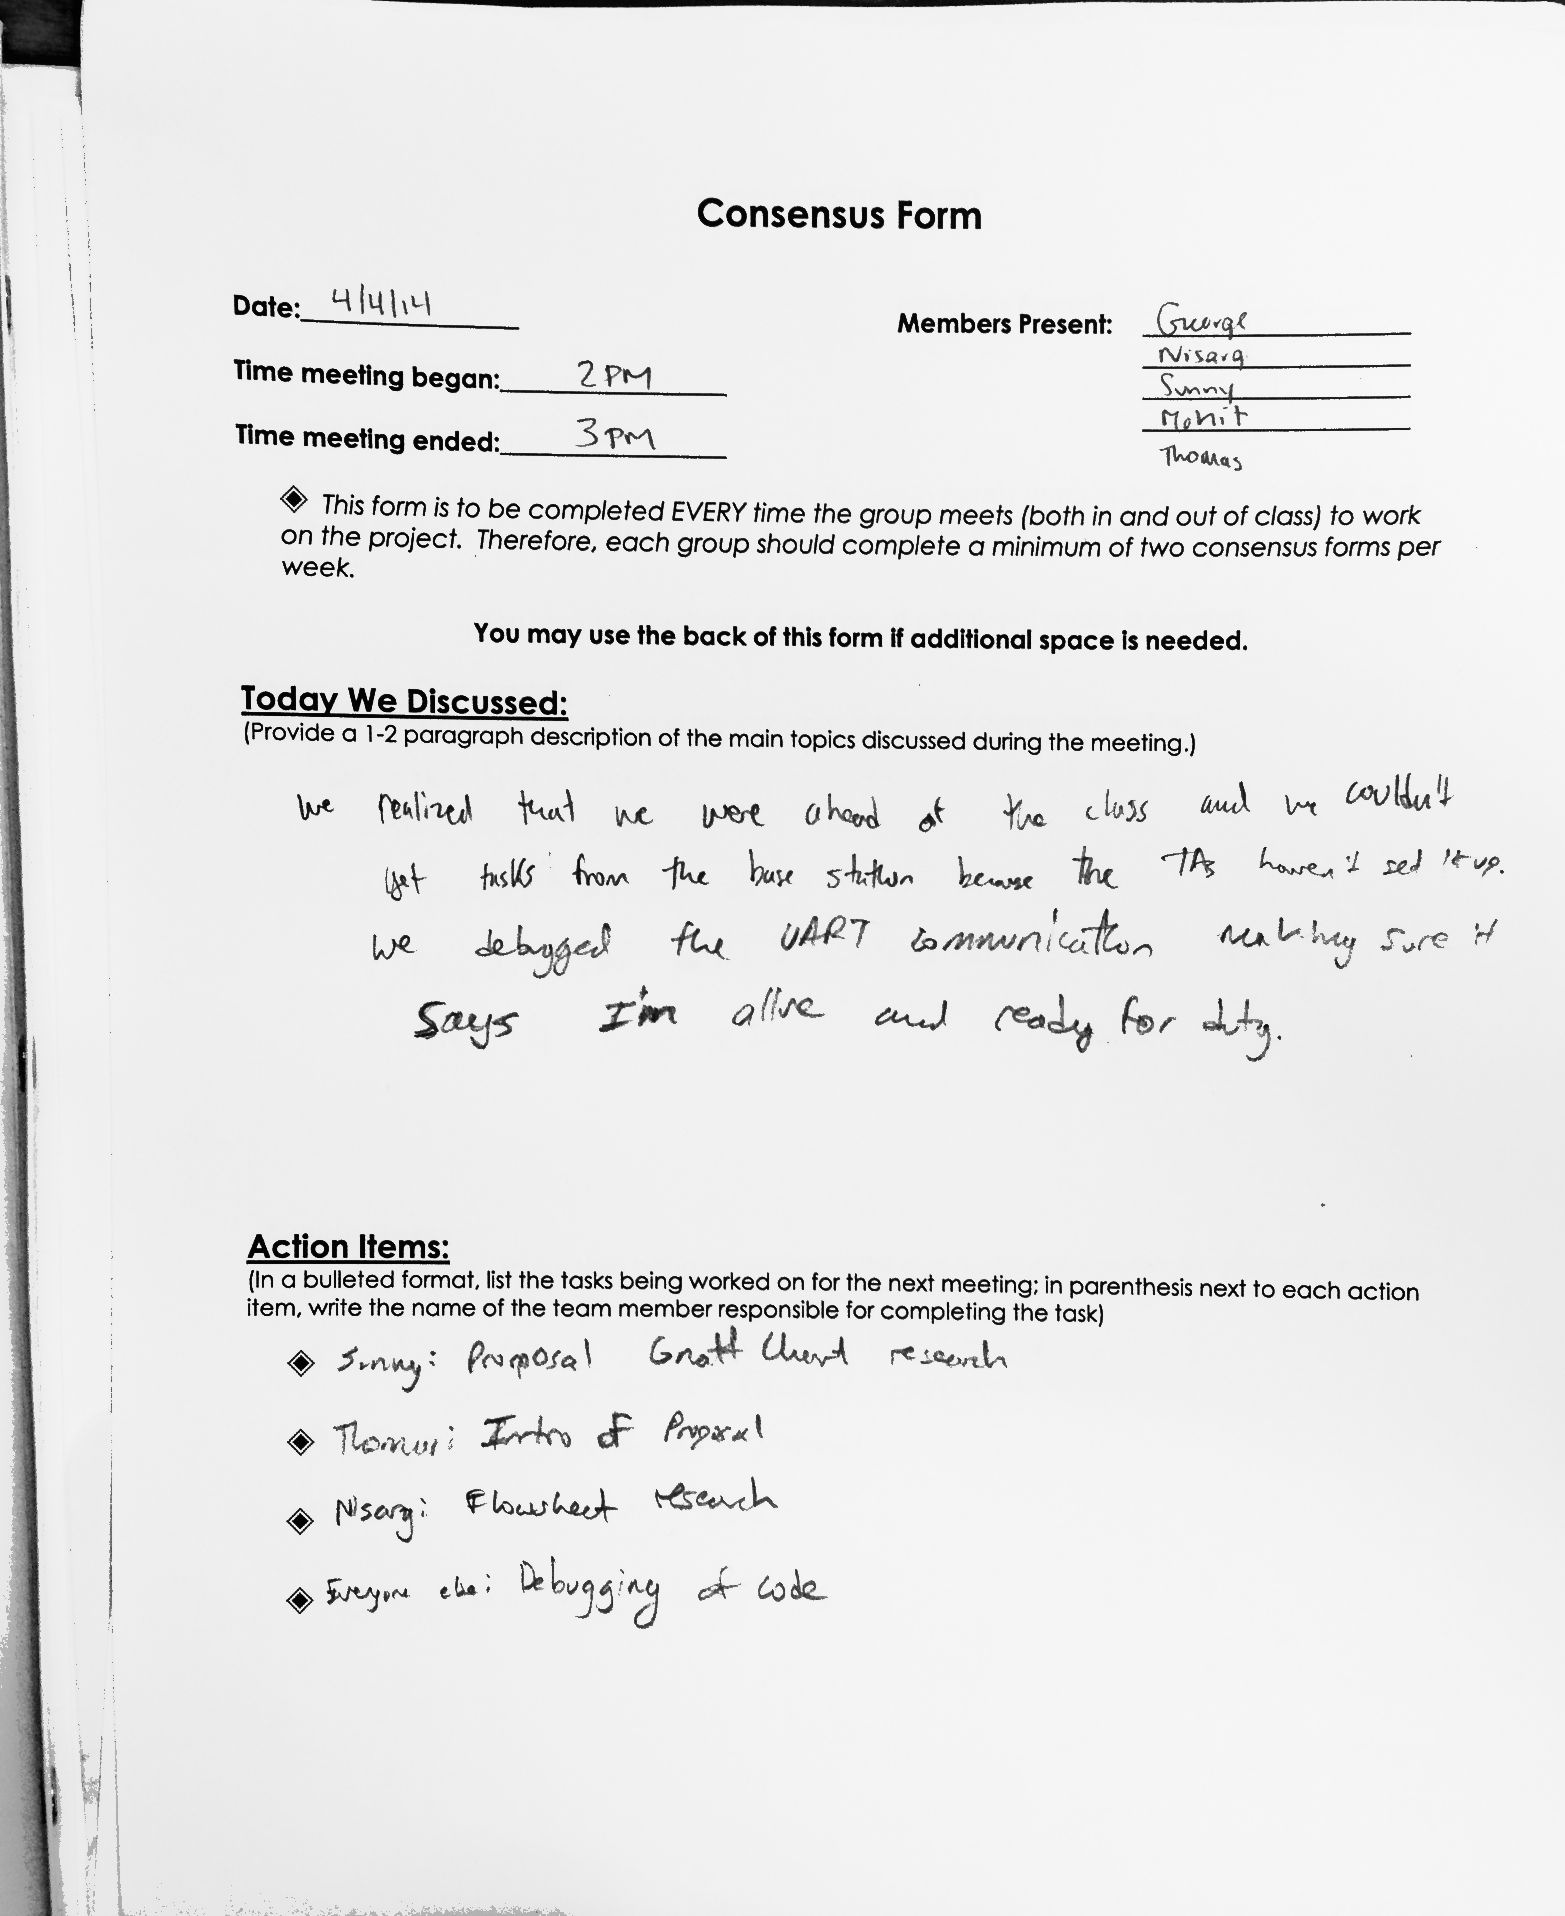 Consensus Form
Date: 4/4/14
Members Present: George
Nisarg
Time meeting began: 2PM
Sunny
Mohit
Time meeting ended: 3PM
Thomas
◈ This form is to be completed EVERY time the group meets (both in and out of class) to work
on the project. Therefore, each group should complete a minimum of two consensus forms per
week.
You may use the back of this form if additional space is needed.
Today We Discussed:
(Provide a 1-2 paragraph description of the main topics discussed during the meeting.)
We realized that we were ahead of the class and we couldn't
get tasks from the base station because the TAs haven't set it up.
We debugged the UART communication making sure it
Says I'm alive and ready for duty.
Action Items:
(In a bulleted format, list the tasks being worked on for the next meeting; in parenthesis next to each action
item, write the name of the team member responsible for completing the task)
◈ Sunny: Proposal Gnatt Chart research
◈ Thomas: Intro of Proposal
◈ Nisarg: Flowsheet research
◈ Everyone else: Debugging of code